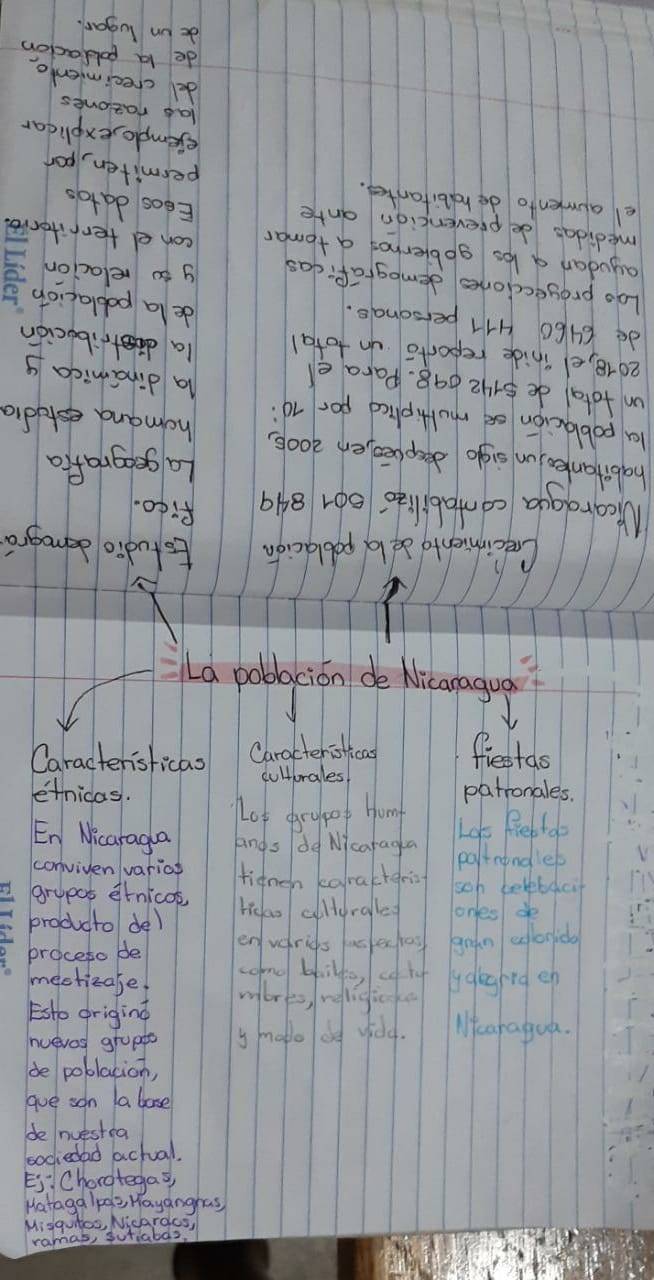 La población de Nicaragua
Crecimiento de la población
Nicaragua contabilizó 501 849
habitantes, un siglo después, en 2005,
la población se multiplica por 10:
un total de 5142 098. Para el
2018, el inide reportó un total
de 6460 411 personas.
Las proyecciones demográficas
ayudan a los gobiernos a tomar
medidas de prevención ante
el aumento de habitantes.
Estudio demográ
fico.
La geografía
humana estudia
la dinámica y
la distribución
de la población
y su relación
con el territorio.
Esos datos
permiten, por
ejemplo, explicar
las razones
del crecimiento
de la población
de un lugar.
El Líder
Características
étnicas.
En Nicaragua
conviven varios
grupos étnicos,
producto del
proceso de
mestizaje.
Esto originó
nuevos grupos
de población,
que son la base
de nuestra
sociedad actual.
Ej: Chorotegas,
Matagalpas, Mayangnas,
Misquitos, Nicaraos,
ramas, Sutiabas.
Características
culturales.
Los grupos hum
anos de Nicaragua
tienen caracterís
ticas culturales
en varios aspectos,
como bailes, costu
mbres,
y modo de vida.
fiestas
patronales.
Las fiestas
patronales
son
ones de
gran colorido
y alegria en
Nicaragua.
El Líder